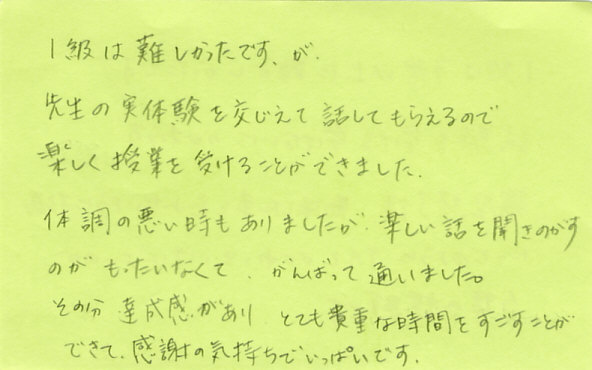 1級は難しかったです、が、
先生の実体験を交じえて話してもらえるので
楽しく授業を受けることができました。
体調の悪い時もありましたが、楽しい話を聞きのがす
のがもったいなくて、がんばって通いました。
その分達成感があり とても貴重な時間をすごすことが
できて、感謝の気持ちでいっぱいです。